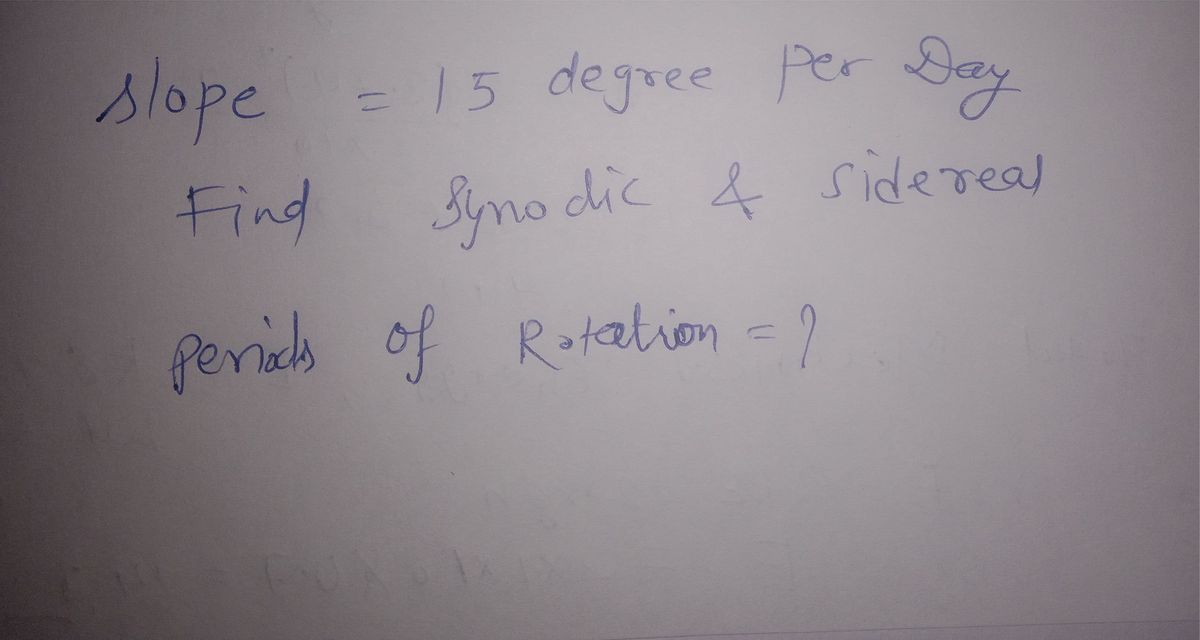 slope = 15 degree per Day
Find Synodic & sidereal
periods of Rotation = ?